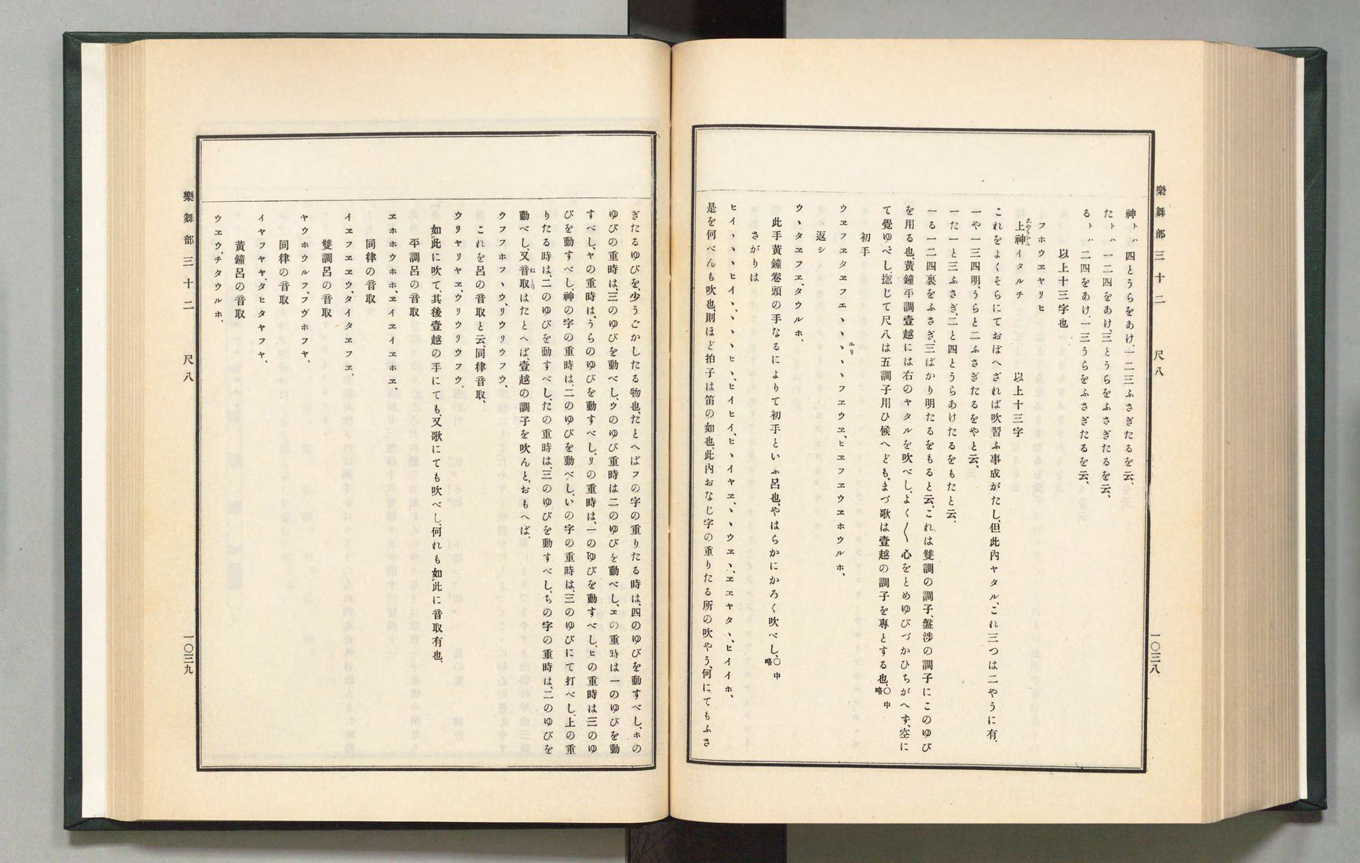 樂舞部三十二 尺八
一〇三八
神ㇳㇵ 四とうらをあけ、一二三ふさぎたるを云、
たㇳㇵ 一二四をあけ、三とうらをふさぎたるを云、
るㇳㇵ 二四をあけ、一三うらをふさぎたるを云、
以上十三字也
フホウヱヤリヒ
上神イタルチ 以上十三字
これをよくそらにておぼへざれば吹習ふ事成がたし、但此内ヤタル、これ三つは二やうに有、
一や一三四明、うらと二ふさぎたるをやと云、
一た一と三ふさぎ、二と四とうらあけたるをもたと云、
一る一二四裏をふさぎ、三ばかり明たるをもると云、これは雙調の調子、盤渉の調子にこのゆび
を用る也、黃鐘平調壹越には右のヤタルを吹べし、よく〳〵心をとめゆびづかひちがへず、空に
て覺ゆべし、摠じて尺八は五調子用ひ候へども、まづ歌は壹越の調子を專とする也、〇中略
初手
ウヱフヱタヱフヱヽヽヽヽフヱウヱ、ヒヱフヱウヱホウルホ、
返シ
ウヽタヱフヱ、タウルホ、
此手黃鐘卷頭の手なるによりて初手といふ呂也、やはらかにかろく吹べし、〇中略
さがりは
ヒイヽヽヒイヽ、ヽヽヒヽ、ヒイヒイ、ヒヽイヤヱ、ヽヽウヱヽ、ヱヱヤタヽ、ヒイイホ、
是を何べんも吹也、則ほど拍子は笛の如也、此内おなじ字の重りたる所の吹やう、何にてもふさ
ぎたるゆびを、少うごかしたる物也、たとへばフの字の重りたる時は、四のゆびを動すべし、ホの
ゆびの重時は、三のゆびを動べし、ウのゆび重時は二のゆびを動べし、ヱの重時は一のゆびを動
すべし、ヤの重時は、うらのゆびを動すべし、リの重時は、一のゆびを動すべし、ヒの重時は三のゆ
びを動すべし、神の字の重時は、二のゆびを動べし、いの字の重時は、三のゆびにて打べし、上の重
りたる時は、二のゆびを動すべし、たの重時は、三のゆびを動すべし、ちの字の重時は、二のゆびを
動べし、又音取はたとへば壹越の調子を吹んと、おもへば、
ウフフホフヽウ、リウリウフウ、
これを呂の音取と云、同律音取、
ウリヤリヤヱ、ウリウリウフウ、
如此に吹て、其後壹越の手にても、又歌にても吹べし、何れも如此に音取有也、
平調呂の音取
ヱホホウホホ、ヱイヱイヱホヱ、
同律の音取
イヱフヱヱウ、タイタヱフヱ、
雙調呂の音取
ヤウホウルフ、フヴホフヤ、
同律の音取
イヤフヤヤ、タヒタヤフヤ、
黃鐘呂の音取
ウヱウ、チタウルホ、
樂舞部三十二 尺八
一〇三九